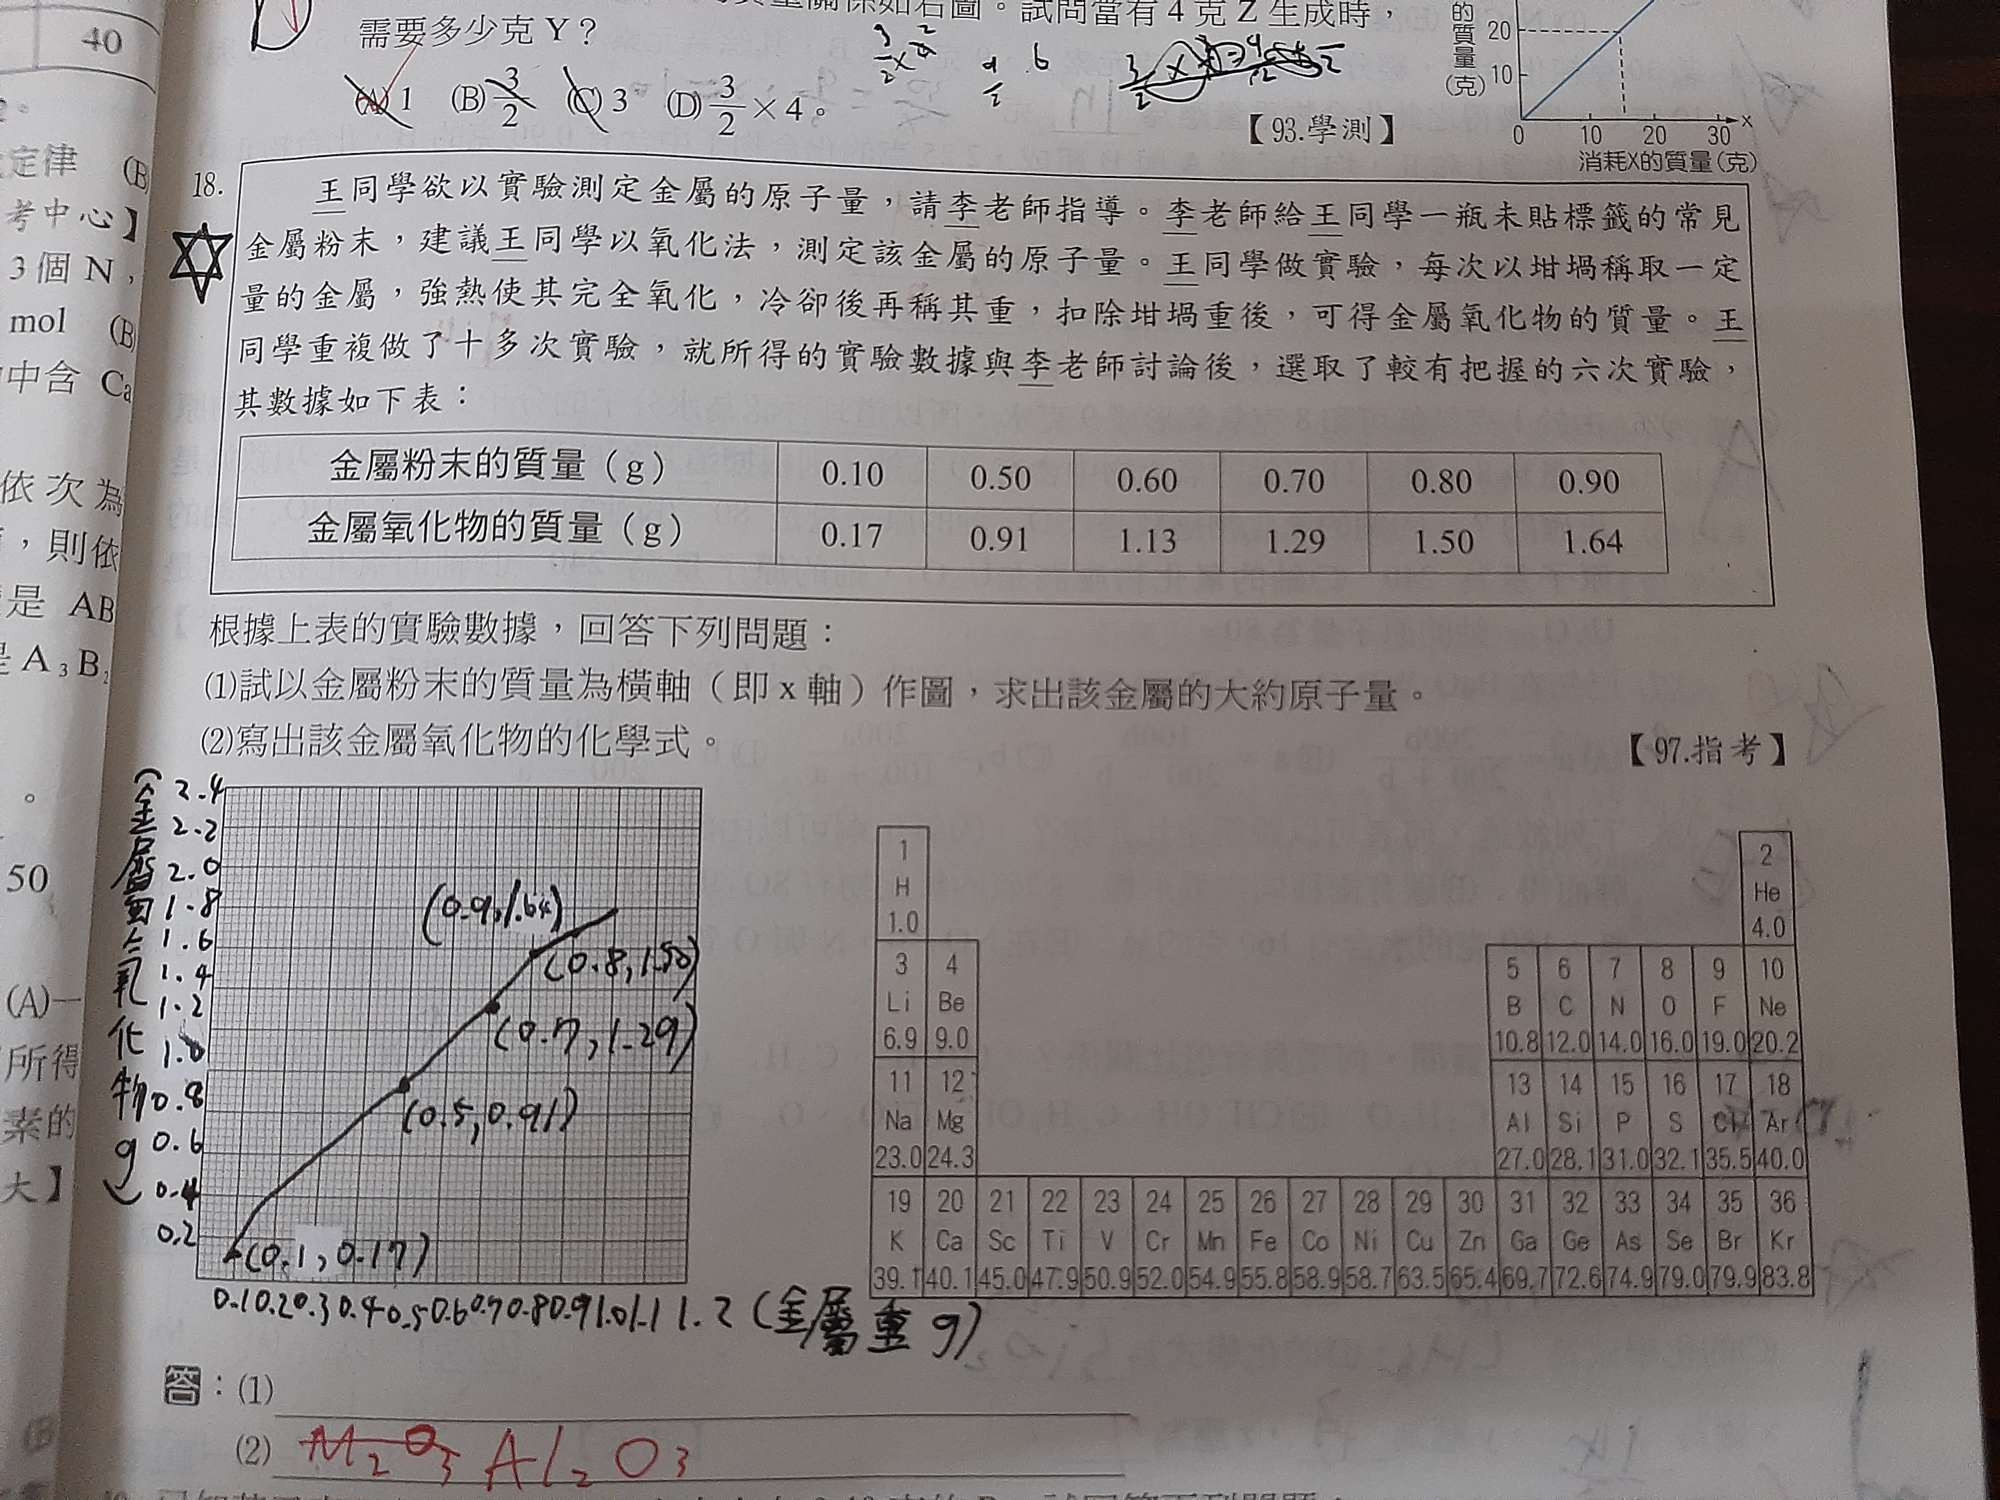 40
質量關係如右圖。試問當有4克Z生成時，
需要多少克Y？
(A) 1 (B) 3/2 (C) 3 (D) 3/2 × 4。
【93.學測】
的質量(克)
20
10
0 10 20 30 x
消耗X的質量(克)
定律 (B)
考中心】
3個N，
mol (B)
中含 Ca
依次為
，則依
是 AB
是 A₃B₂
。
50
(A)一
所得
素的
大】
18.
王同學欲以實驗測定金屬的原子量，請李老師指導。李老師給王同學一瓶未貼標籤的常見
金屬粉末，建議王同學以氧化法，測定該金屬的原子量。王同學做實驗，每次以坩堝稱取一定
量的金屬，強熱使其完全氧化，冷卻後再稱其重，扣除坩堝重後，可得金屬氧化物的質量。王
同學重複做了十多次實驗，就所得的實驗數據與李老師討論後，選取了較有把握的六次實驗，
其數據如下表：
金屬粉末的質量（g） 0.10 0.50 0.60 0.70 0.80 0.90
金屬氧化物的質量（g） 0.17 0.91 1.13 1.29 1.50 1.64
根據上表的實驗數據，回答下列問題：
(1)試以金屬粉末的質量為橫軸（即 x 軸）作圖，求出該金屬的大約原子量。
(2)寫出該金屬氧化物的化學式。
【97.指考】
(金屬氧化物g)
2.4
2.2
2.0
1.8
1.6
1.4
1.2
1.0
0.8
0.6
0.4
0.2
(0.9,1.64)
(0.8,1.50)
(0.7,1.29)
(0.5,0.91)
(0.1,0.17)
0.1 0.2 0.3 0.4 0.5 0.6 0.7 0.8 0.9 1.0 1.1 1.2 (金屬重 g)
1 2
H He
1.0 4.0
3 4 5 6 7 8 9 10
Li Be B C N O F Ne
6.9 9.0 10.8 12.0 14.0 16.0 19.0 20.2
11 12 13 14 15 16 17 18
Na Mg Al Si P S Cl Ar
23.0 24.3 27.0 28.1 31.0 32.1 35.5 40.0
19 20 21 22 23 24 25 26 27 28 29 30 31 32 33 34 35 36
K Ca Sc Ti V Cr Mn Fe Co Ni Cu Zn Ga Ge As Se Br Kr
39.1 40.1 45.0 47.9 50.9 52.0 54.9 55.8 58.9 58.7 63.5 65.4 69.7 72.6 74.9 79.0 79.9 83.8
答：(1)
(2) M₂O₃ Al₂O₃